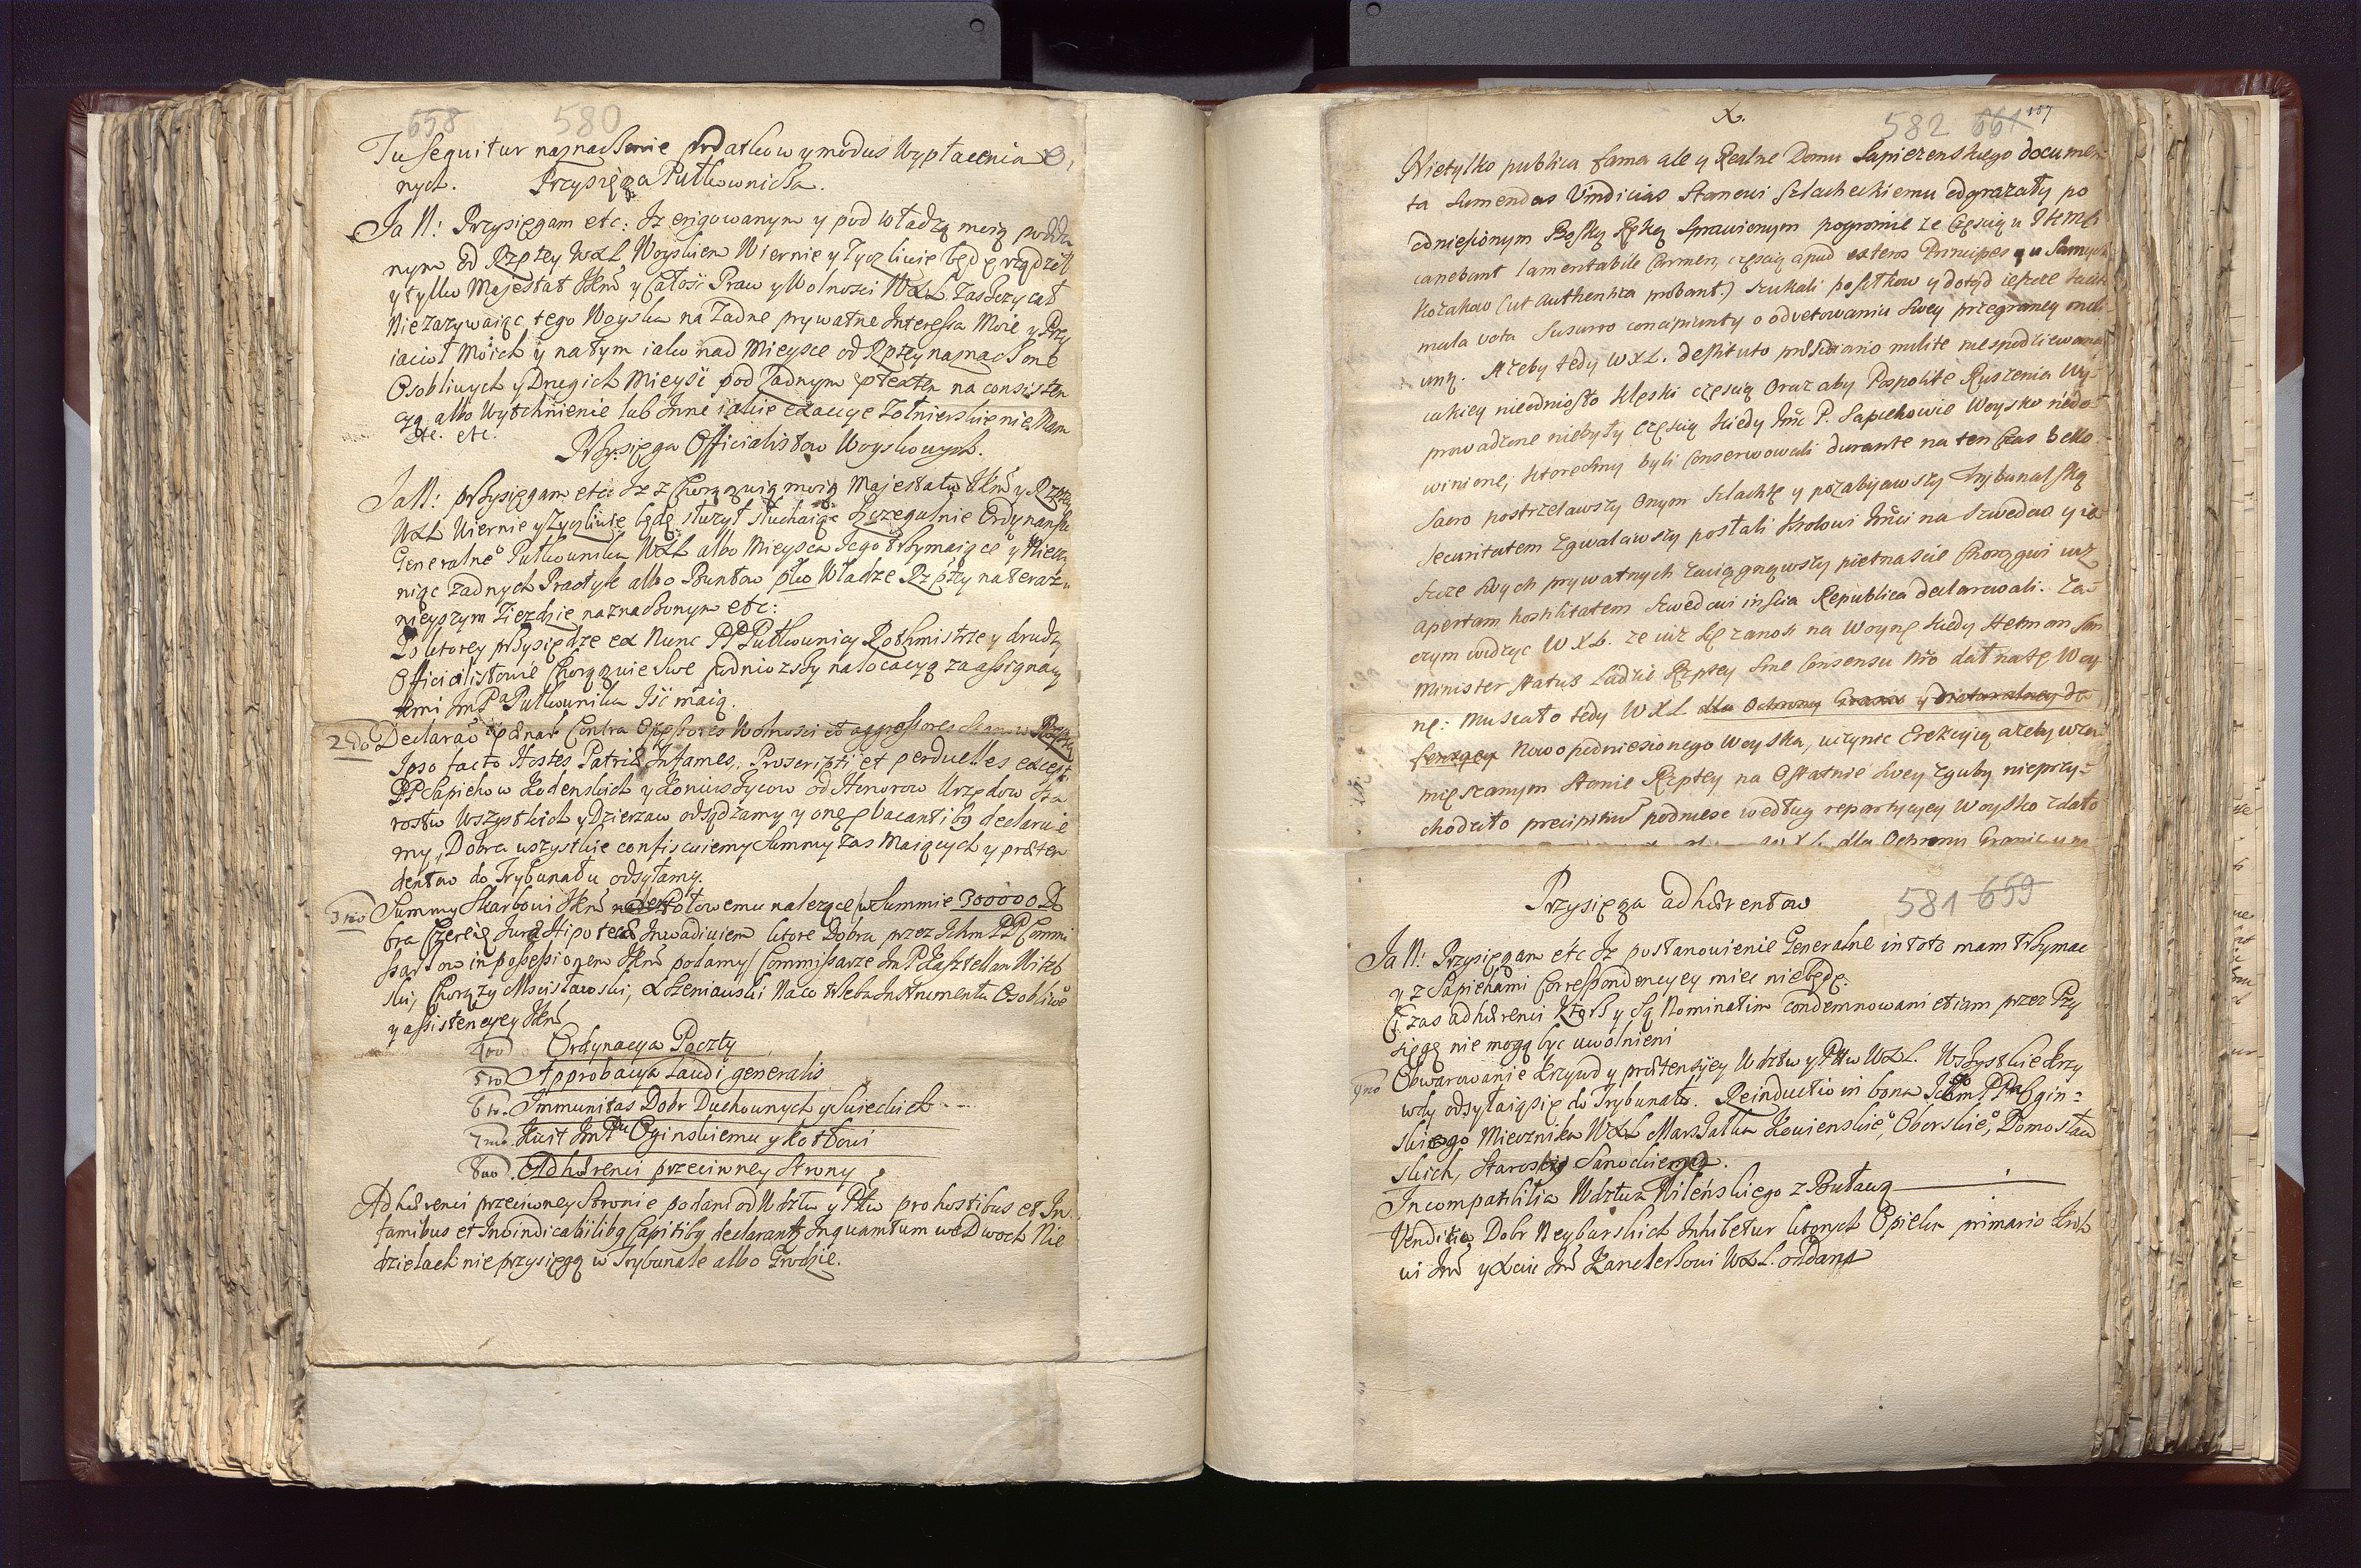 658 580
Tu sequitur naznaczenie podatkow y modus wypłacenia O,
nych. Przysięga Pułkownicza.
Ja N: Przysięgam etc: Iz erigowanym y pod władzą moią podda
nym od Rzptey WXL Woyskiem Wiernie y Życzliwie będę rządził
y tylko Majestat JKm y Całość Praw y Wolnosci WXL Zaszczycał
Niezazywaiąc tego Woyska na Żadne prywatne Interessa Moie y Przy
iacioł Moich y na tym iako nad Mieysce od Rptey naznaczone
Osobliwych y Drugich Mieysc pod Żadnym ptextem na consisten
cyą albo Wytchnienie lub Inne iakie exakcye Żołnierskie nie Mam
etc. etc.
Przysięga Officialistow Woyskowych.
Ja N: przysięgam etc: Iz z Chorągwią moią Majestatu JKm y Rzptey
WXL Wiernie y Życzliwie będę służył słuchaiąc Szczegulnie Ordynansu
Generalne Pułkownika WXL albo Mieysca Jego trzymaiące y Nieczy
niąc żadnych Practyk albo Buntow plwo Władze Rzptey na teraz
nieyszym Zieździe naznaczonym etc:
Po ktorey przysiędze ex Nunc PP Pułkownicy Rothmistrze y drudzy
Officialistowie Chorągwie Swe podniozszy na locacyą za assignacy
ami Im Pa Pułkownika Iść maią.
2do Declarac contra Oppressores Wolnosci et aggressores
Ipso facto Hostes Patriæ Infames, Proscripti et perduelles except:
PP Sapiehow Kodenskich y Koniuszycow od Honorow Urzędow Sta
rostw Wszystkich y Dzierzaw odsądzamy y one p vacantibg declaruie
my, Dobra wszystkie confiscuiemy Summy zas Maiących y præten
dentow do Trybunału odsyłamy.
3tio Summy Skarbowi JKm należące w Summie 300000 Do
bra Czereią Jura Hipotecæ Inwadiuiem ktore Dobra przez Ichm PP Commi
ssarzow in possessionem JKm podamy Commissarze Im P Kasztellan Witeb
ski, Chorąży Mscisławski, Łozeniawski Na co trzeba Instrumentu Osobliwe
y assistencyey JKm
4to Ordynacya Poczty
5to Approbacya Laudi generalis
6to. Immunitas Dobr Duchownych y Swieckich
7mo. Kwit Im Pu Oginskiemu y Kotłowi
8vo. Adhærenci przeciwney Strony
Adhærenci przeciwney Stronie podani od Wdztw y Ptw pro hostibus et In
famibus et Inuindicabilibg Capitibg declarantur Inquantum we Dwoch Nie
dzielach nie przysięgą w Trybunale albo Grodzie.
X. 582 661 157
Nietylko publica fama ale y Realne Domu Sapiezenskiego documen
ta Sumendas Vindicias Stanowi Szlacheckiemu odgrazały po
odniesionym Boską Ręką Sprawionym pogromie ze Częscią u Niemcow
canebant lamentabile Carmen, częscią apud exteros Principes y u Samych
Kozakow (ut authentica probant.) szukali posiłkow y dotąd ieszcze
mula vota Susurro concipiunty o odwetowaniu Swey przegraney
umy. Azeby tedy WXL. destituto milite niespodziewaną
iakiey nieodniosło klęski częscią Oraz aby Pospolite Ruszenia Wy-
prowadzone niebyły Częscią kiedy Imc P. Sapiehowie Woysko niedo-
winione, ktorechmy byli Conserwowali durante na ten Czas bello
Sacro postrzelawszy Onym Szlachtę y pozabijawszy Trybunalską
Securitatem zgwałciwszy posłali Krolowi Imci na Szwedow y ie
szcze Swych prywatnych zaciągnąwszy pietnascie Chorągwi iuż
apertam hostilitatem Szwedowi inscia Republica declarowali. Za-
czym widząc WXL. ze iuż się zanosi na Woynę kiedy Hetman Sam
Minister status Ladzie Rzptey sine Consensu dał na tę Woy
nę: Musiało tedy WXL dla Ochrony Granic y do
Nowo podniesionego Woyska, uczynic Erekcyią azeby wza
mięszanym Stanie Rzptey na Ostatnie Swey Zguby nieprzy-
chodziło podniesc według repartycyey Woysko zdało
WXL dla Ochrony Granic
Przysięga adhærentow 581 659
Ja N: Przysięgam etc Iz postanowienie Generalne in toto mam trzymac
y z Sapiehami Correspondencyey miec nie będę:
Ci zas adhærenci Ktorzy Są Nominatim Condemnowani etiam przez Przy
sięgę nie mogą byc uwolnieni
9no Obwarowanie Krzywd y prætensyey Wdztw y Ptw WXL. Wszystkie krzy
wdy odsyłaią się do Trybunału. Reinductio in bona Ichm PP Ogin-
skiego Miecznika WXL Marszałka Kowienskie, Oborskie, Domosław
skich, Starosty Sanockiego.
Incompatibilia Wdztwa Wileńskiego z Buławą
Venditio Dobr Neyburskich Inhibetur ktorych Opieka primario Krolo
wi Im y Xciu Im Kanclerzowi WXL. oddana